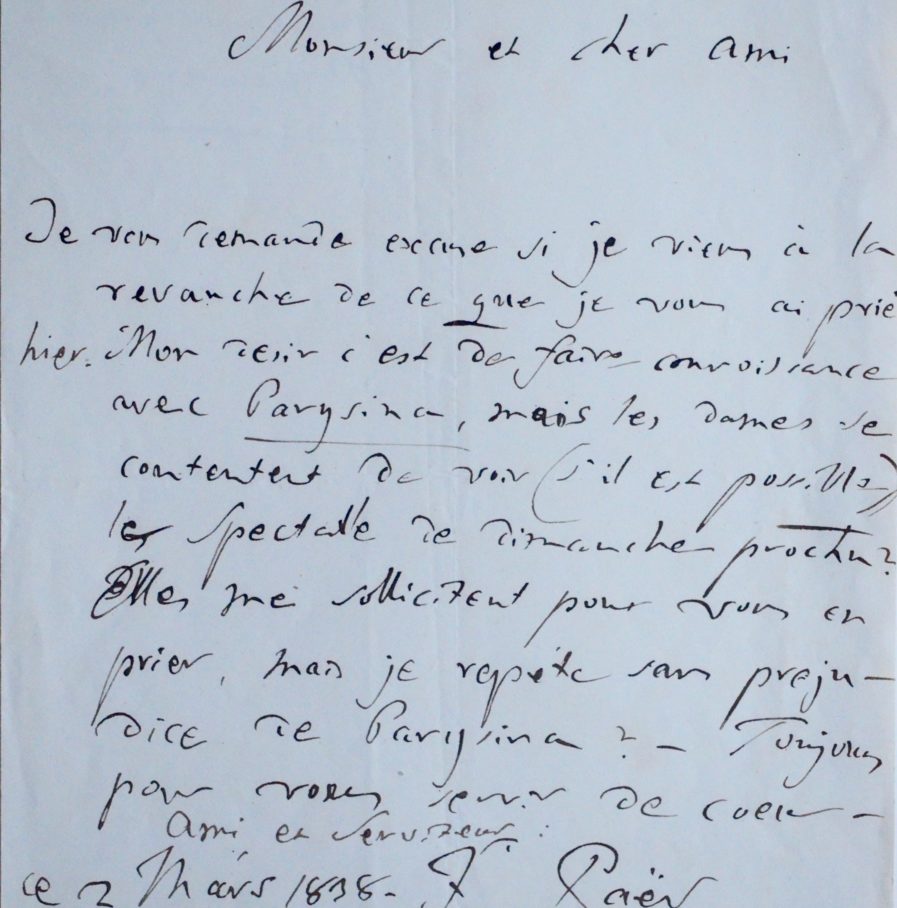 Monsieur et cher ami
Je vous demande excuse si je viens à la
revanche de ce que je vous ai prié
hier. Mon desir c'est de faire connoissance
avec Parysina, mais les dames se
contentent de voir (s'il est possible)
le spectacle de dimanche prochin?
Elles me sollicitent pour vous en
prier, mais je repéte sans preju-
dice de Parysina? - Toujours
pour vous servir de coeur -
Ami et Serviteur:
ce 2 Mars 1838 - Fr Paër